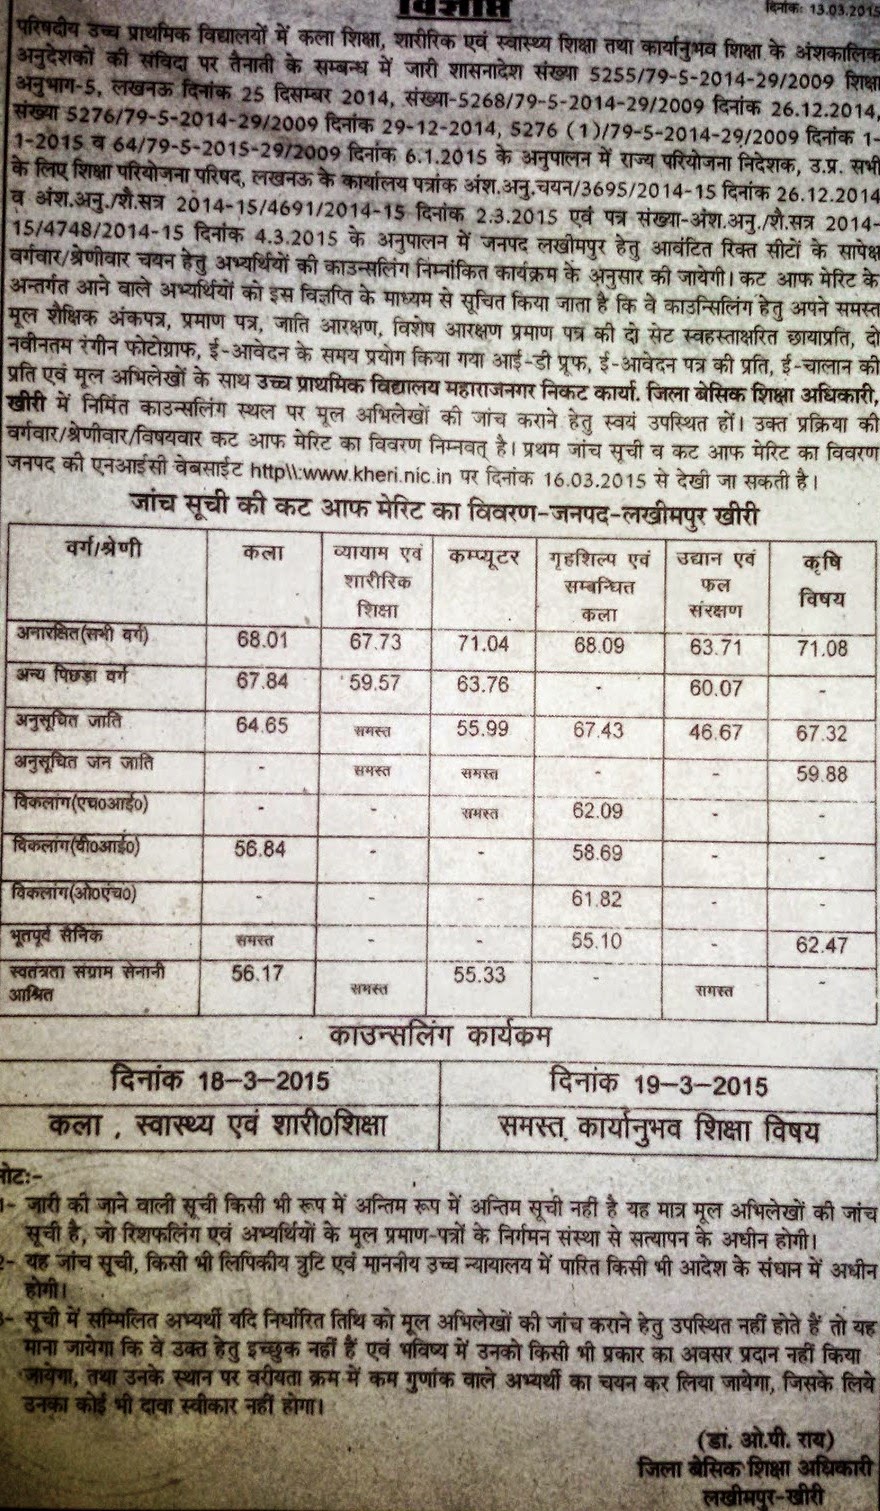 विज्ञप्ति
दिनांक: 13.03.2015
परिषदीय उच्च प्राथमिक विद्यालयों में कला शिक्षा, शारीरिक एवं स्वास्थ्य शिक्षा तथा कार्यानुभव शिक्षा के अंशकालिक
अनुदेशकों की संविदा पर तैनाती के सम्बन्ध में जारी शासनादेश संख्या 5255/79-5-2014-29/2009 शिक्षा
अनुभाग-5, लखनऊ दिनांक 25 दिसम्बर 2014, संख्या-5268/79-5-2014-29/2009 दिनांक 26.12.2014,
संख्या 5276/79-5-2014-29/2009 दिनांक 29-12-2014, 5276 (1)/79-5-2014-29/2009 दिनांक 1-
1-2015 व 64/79-5-2015-29/2009 दिनांक 6.1.2015 के अनुपालन में राज्य परियोजना निदेशक, उ.प्र. सभी
के लिए शिक्षा परियोजना परिषद, लखनऊ के कार्यालय पत्रांक अंश.अनु.चयन/3695/2014-15 दिनांक 26.12.2014
व अंश.अनु./शै.सत्र 2014-15/4691/2014-15 दिनांक 2.3.2015 एवं पत्र संख्या-अंश.अनु./शै.सत्र 2014-
15/4748/2014-15 दिनांक 4.3.2015 के अनुपालन में जनपद लखीमपुर हेतु आवंटित रिक्त सीटों के सापेक्ष
वर्गवार/श्रेणीवार चयन हेतु अभ्यर्थियों की काउन्सलिंग निम्नांकित कार्यक्रम के अनुसार की जायेगी। कट आफ मेरिट के
अन्तर्गत आने वाले अभ्यर्थियों को इस विज्ञप्ति के माध्यम से सूचित किया जाता है कि वे काउन्सिलिंग हेतु अपने समस्त
मूल शैक्षिक अंकपत्र, प्रमाण पत्र, जाति आरक्षण, विशेष आरक्षण प्रमाण पत्र की दो सेट स्वहस्ताक्षरित छायाप्रति, दो
नवीनतम रंगीन फोटोग्राफ, ई-आवेदन के समय प्रयोग किया गया आई-डी प्रूफ, ई-आवेदन पत्र की प्रति, ई-चालान की
प्रति एवं मूल अभिलेखों के साथ उच्च प्राथमिक विद्यालय महाराजनगर निकट कार्या. जिला बेसिक शिक्षा अधिकारी,
खीरी में निर्मित काउन्सलिंग स्थल पर मूल अभिलेखों की जांच कराने हेतु स्वयं उपस्थित हों। उक्त प्रक्रिया की
वर्गवार/श्रेणीवार/विषयवार कट आफ मेरिट का विवरण निम्नवत् है। प्रथम जांच सूची व कट आफ मेरिट का विवरण
जनपद की एनआईसी वेबसाईट http\\:www.kheri.nic.in पर दिनांक 16.03.2015 से देखी जा सकती है।
जांच सूची की कट आफ मेरिट का विवरण-जनपद-लखीमपुर खीरी
वर्ग/श्रेणी कला व्यायाम एवं शारीरिक शिक्षा कम्प्यूटर गृहशिल्प एवं सम्बन्धित कला उद्यान एवं फल संरक्षण कृषि विषय
अनारक्षित(सभी वर्ग) 68.01 67.73 71.04 68.09 63.71 71.08
अन्य पिछड़ा वर्ग 67.84 59.57 63.76 - 60.07 -
अनुसूचित जाति 64.65 समस्त 55.99 67.43 46.67 67.32
अनुसूचित जन जाति - समस्त समस्त - - 59.88
विकलांग(एच०आई०) - - समस्त 62.09 - -
विकलांग(वी०आई०) 56.84 - - 58.69 - -
विकलांग(ओ०एच०) - - - 61.82 - -
भूतपूर्व सैनिक समस्त - - 55.10 - 62.47
स्वतंत्रता संग्राम सेनानी आश्रित 56.17 समस्त 55.33 - समस्त -
काउन्सलिंग कार्यक्रम
दिनांक 18-3-2015 दिनांक 19-3-2015
कला , स्वास्थ्य एवं शारी०शिक्षा समस्त कार्यानुभव शिक्षा विषय
नोट:-
1- जारी की जाने वाली सूची किसी भी रूप में अन्तिम रूप में अन्तिम सूची नहीं है यह मात्र मूल अभिलेखों की जांच
सूची है, जो रिशफलिंग एवं अभ्यर्थियों के मूल प्रमाण-पत्रों के निर्गमन संस्था से सत्यापन के अधीन होगी।
2- यह जांच सूची, किसी भी लिपिकीय त्रुटि एवं माननीय उच्च न्यायालय में पारित किसी भी आदेश के संधान में अधीन
होगी।
3- सूची में सम्मिलित अभ्यर्थी यदि निर्धारित तिथि को मूल अभिलेखों की जांच कराने हेतु उपस्थित नहीं होते हैं तो यह
माना जायेगा कि वे उक्त हेतु इच्छुक नहीं हैं एवं भविष्य में उनको किसी भी प्रकार का अवसर प्रदान नहीं किया
जायेगा, तथा उनके स्थान पर वरीयता क्रम में कम गुणांक वाले अभ्यर्थी का चयन कर लिया जायेगा, जिसके लिये
उनका कोई भी दावा स्वीकार नहीं होगा।
(डा. ओ.पी. राय)
जिला बेसिक शिक्षा अधिकारी
लखीमपुर-खीरी